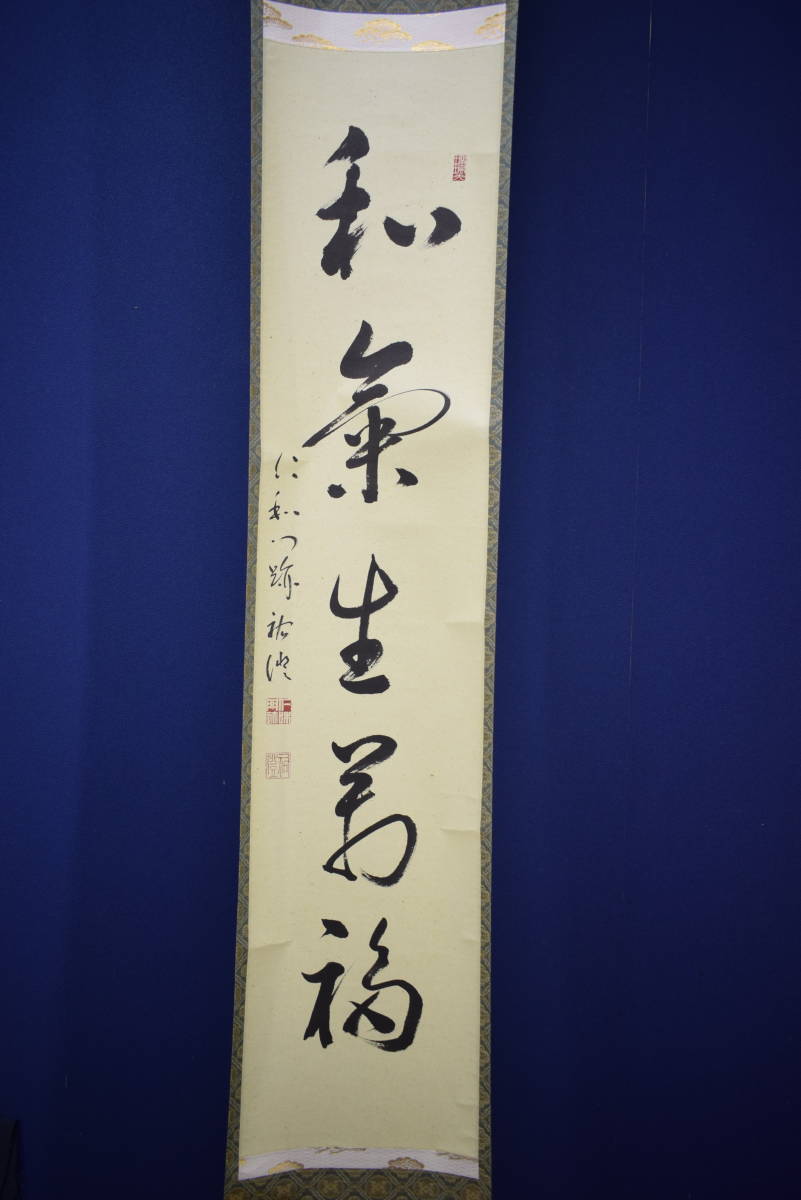 和氣生萬福
仁和門跡祐澄